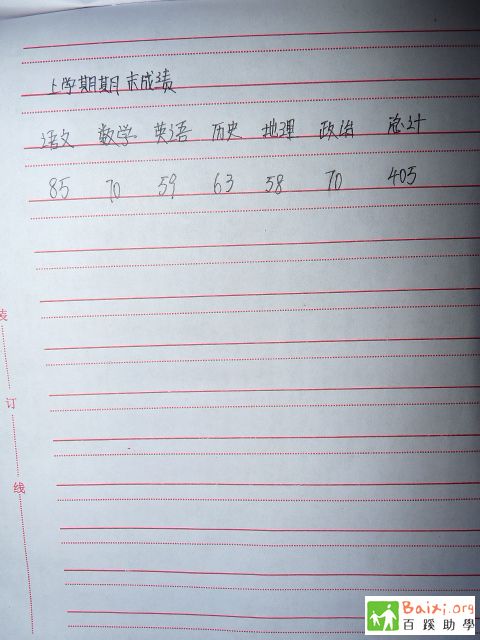 上学期期末成绩
语文 数学 英语 历史 地理 政治 总计
85 70 59 63 58 70 405
装
订
线
Baixi.org
百蹊助學